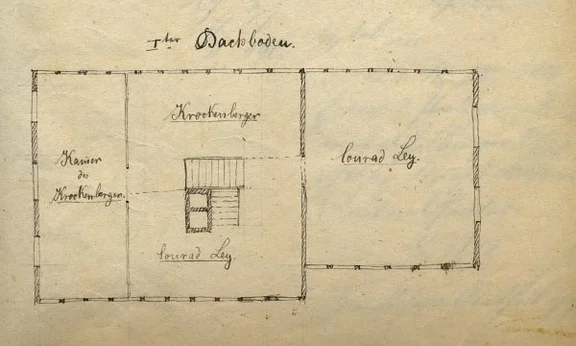 Iter Dachboden.
Krockenberger
Kamer
des
Krockenberger.
Conrad Ley.
Conrad Ley.